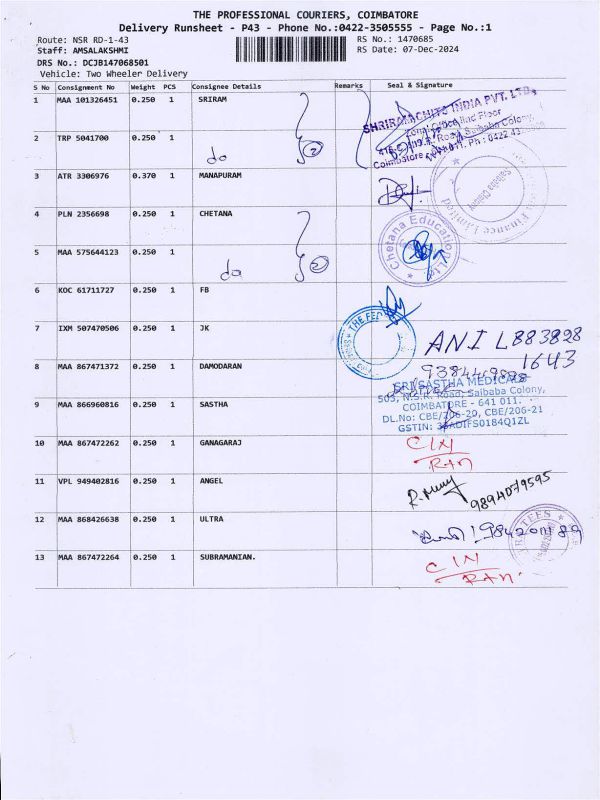 THE PROFESSIONAL COURIERS, COIMBATORE
Delivery Runsheet - P43 - Phone No.:0422-3505555 - Page No.:1
Route: NSR RD-1-43
RS No.: 1470685
Staff: AMSALAKSHMI
RS Date: 07-Dec-2024
DRS No.: DCJB147068501
Vehicle: Two Wheeler Delivery
S No Consignment No Weight PCS Consignee Details Remarks Seal & Signature
1 MAA 101326451 0.250 1 SRIRAM
SHRIRAM CHITS INDIA PVT. LTD.
2 TRP 5041700 0.250 1 do 2
3 ATR 3306976 0.370 1 MANAPURAM
4 PLN 2356698 0.250 1 CHETANA
Chetana Education Ltd
5 MAA 575644123 0.250 1 do 2
6 KOC 61711727 0.250 1 FB
7 IXM 507470506 0.250 1 JK
ANIL 883828
1643
8 MAA 867471372 0.250 1 DAMODARAN
SRI SASTHA MEDICALS
503, N.S.R. Road, Saibaba Colony,
9 MAA 866960816 0.250 1 SASTHA
COIMBATORE - 641 011.
DL.No: CBE/206-20, CBE/206-21
10 MAA 867472262 0.250 1 GANAGARAJ
CIN
RAN
11 VPL 949402816 0.250 1 ANGEL
9894079595
12 MAA 868426638 0.250 1 ULTRA
13 MAA 867472264 0.250 1 SUBRAMANIAN.
CIN
RAN